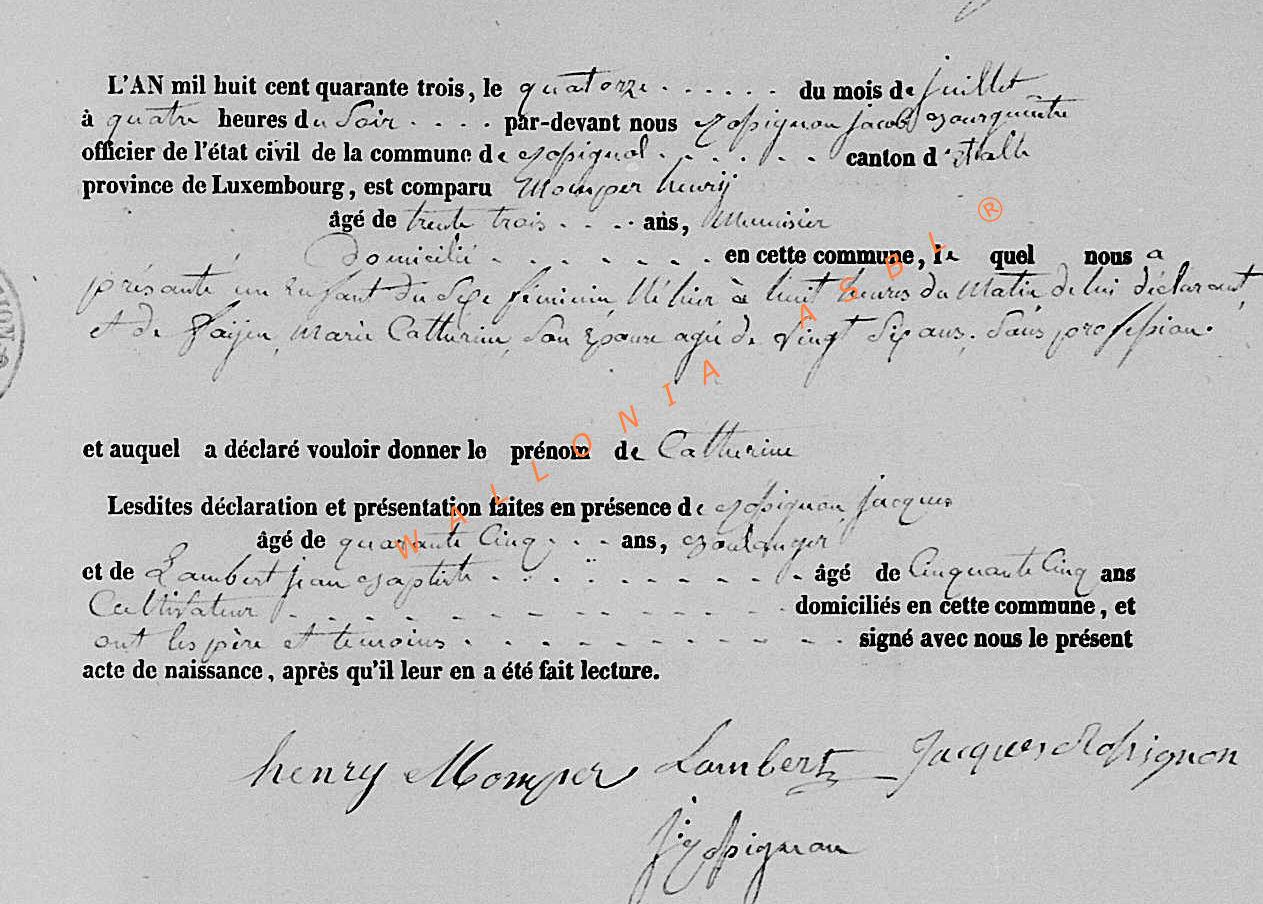 L'AN mil huit cent quarante trois, le quatorze . . . . . . du mois de juillet
à quatre heures du Soir . . . . par-devant nous Rossignon jacob Bourguemtre
officier de l'état civil de la commune de Rossignol . . . . . . canton d'Etalle
province de Luxembourg, est comparu Momper henrÿ
âgé de trente trois . . . . ans, Menuisier
Domicilié . . . . . . . en cette commune, le quel nous a
présanté un Enfant du Sexe féminin Né hier à huit heures du Matin de lui déclarant,
et de Marie Catherine, Son Epouse agée de Vingt Six ans. Sans profession.
et auquel a déclaré vouloir donner le prénom de Catherine
Lesdites déclaration et présentation faites en présence de Rossignon jacques
âgé de quarante Cinq . . . ans, Boulanger
et de Lambert jean Baptiste . . . . . . . . . . âgé de Cinquante Cinq ans
Cultivateur - - - - - - - - - - domiciliés en cette commune, et
ont les père et témoins . . . . . . . . . . signé avec nous le présent
acte de naissance, après qu'il leur en a été fait lecture.
henry Momper Lambert Jacques Rossignon
J Rossignon
WALLONIA ASBL ®